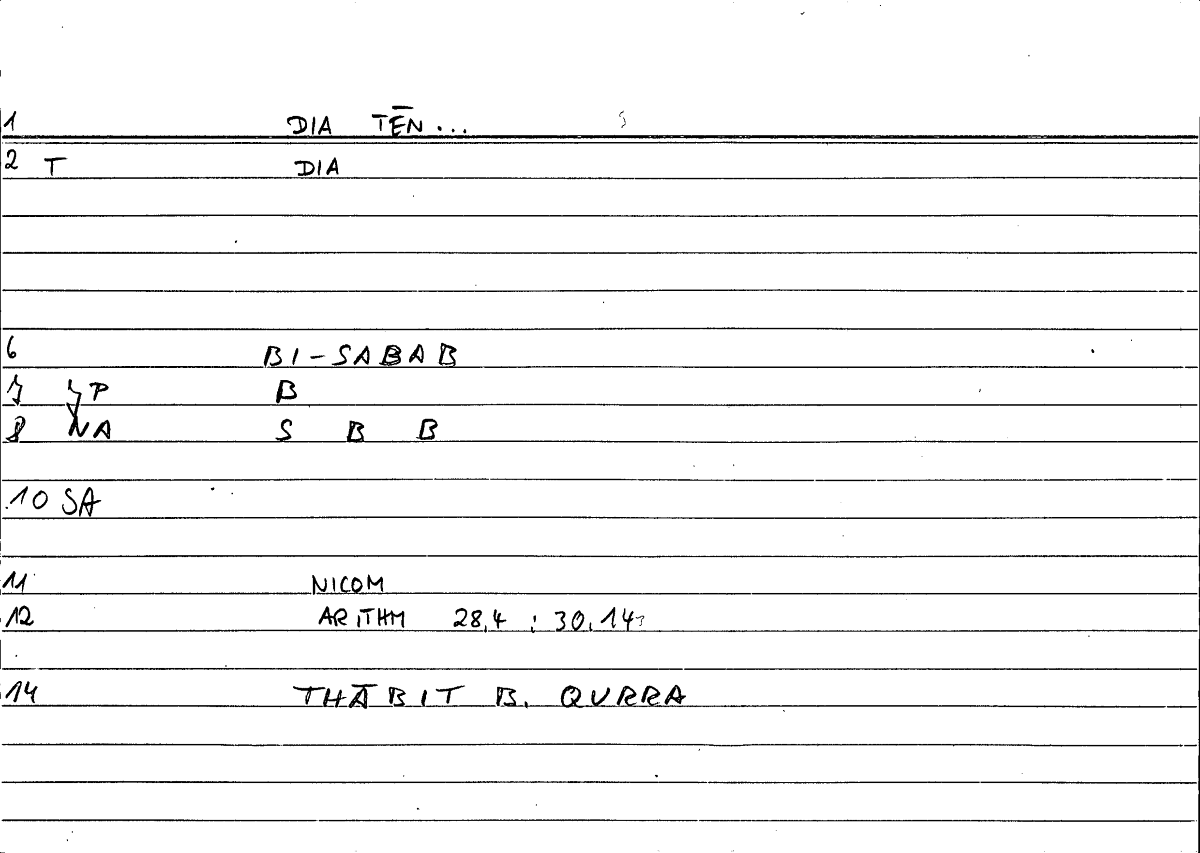 1 DIA TĒN ...
2 T DIA
6 BI-SABAB
7 P B
8 NA S B B
10 SA
11 NICOM
12 ARITHM 28,4 ; 30,14
14 THĀBIT B. QURRA